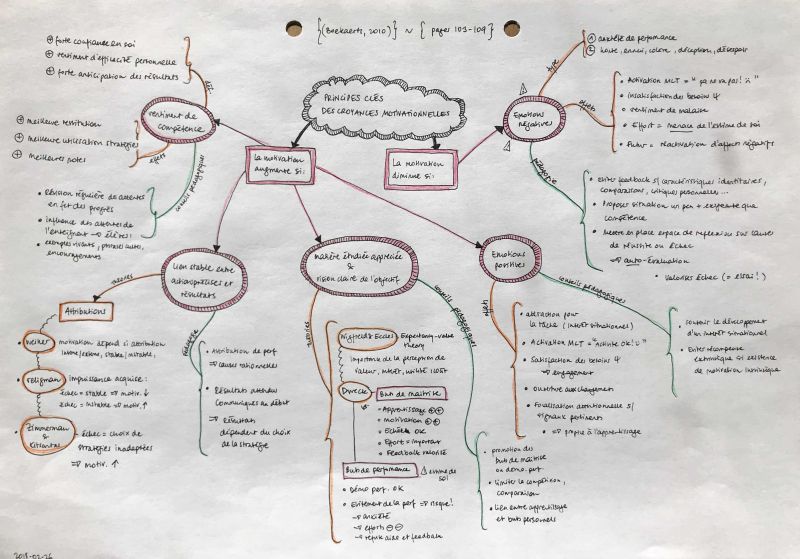 {(Boekaerts, 2010)} ~ { pages 103-109}
⊕ forte confiance en soi
⊕ sentiment d'efficacité personnelle
⊕ forte anticipation des résultats
déf.
sentiment de
compétence
⊕ meilleure restitution
⊕ meilleure utilisation stratégies
⊕ meilleures notes
effets
conseils pédagogiques
• Révision régulière des attentes
en fct des progrès
• influence des attentes de
l'enseignant → élèves!
• exemples vivants, phrases cultes,
encouragements
PRINCIPES CLÉS
DES CROYANCES MOTIVATIONNELLES
La motivation
augmente si:
La motivation
diminue si:
Emotions
négatives
type
① anxiété de performance
② honte, ennui, colère, déception, désespoir
effets
• Activation MLT = "ça ne va pas!"
• insatisfaction des besoins Ψ
• sentiment de malaise
• Effort = menace de l'estime de soi
• Futur = réactivation d'affects négatifs
pédagogie
• Eviter feedback s/ caractéristiques identitaires,
comparaisons, critiques personnelles...
• Proposer situation un peu + exigeante que
compétence
• Mettre en place espace de réflexion sur causes
de réussite ou échec
⇒ auto-évaluation
• Valoriser échec (= essai!)
Lien stable entre
actions, processus et
résultats
théories
Attributions
Weiner
motivation dépend si attribution
interne/externe, stable/instable,
Seligman
impuissance acquise:
échec = stable ⇒ motiv. ↓
échec = instable ⇒ motiv. ↑
Zimmerman
&
Kitsantas
échec = choix de
stratégies inadaptées
⇒ motiv. ↑
pédagogie
• Attribution de perf
⇒ causes rationnelles
• Résultats attendus
communiqués au début
⇒ Résultats
dépendent du choix
de la stratégie
matière étudiée appréciée
&
vision claire de l'objectif
théories
Wigfield & Eccles
Expectancy-value
theory
importance de la perception de
valeur, intérêt, utilité, coût
Dweck
But de maîtrise
• Apprentissage ⊕⊕
• motivation ⊕⊕
• Echec = OK
• Effort = important
• Feedback valorisé
But de performance
⚠ estime de
soi
• Démo perf. OK
• Evitement de la perf ⇒ risque!
→ anxiété
→ efforts ⊖⊖
→ refus aide et feedback
conseils pédagogiques
• promotion des
buts de maîtrise
ou démo. perf
• limiter la compétition,
comparaison
• Lien entre apprentissage
et buts personnels
Emotions
positives
effets
• attraction pour
la tâche (intérêt situationnel)
• Activation MLT = "Activité OK! ∪"
• Satisfaction des besoins Ψ
⇒ engagement
• Ouverture aux changement
• Focalisation attentionnelle s/
signaux pertinents
⇒ propice à l'apprentissage
conseils pédagogiques
• soutenir le développement
d'un intérêt situationnel
• Eviter récompense
extrinsèque si existence
de motivation intrinsèque
2018-02-26